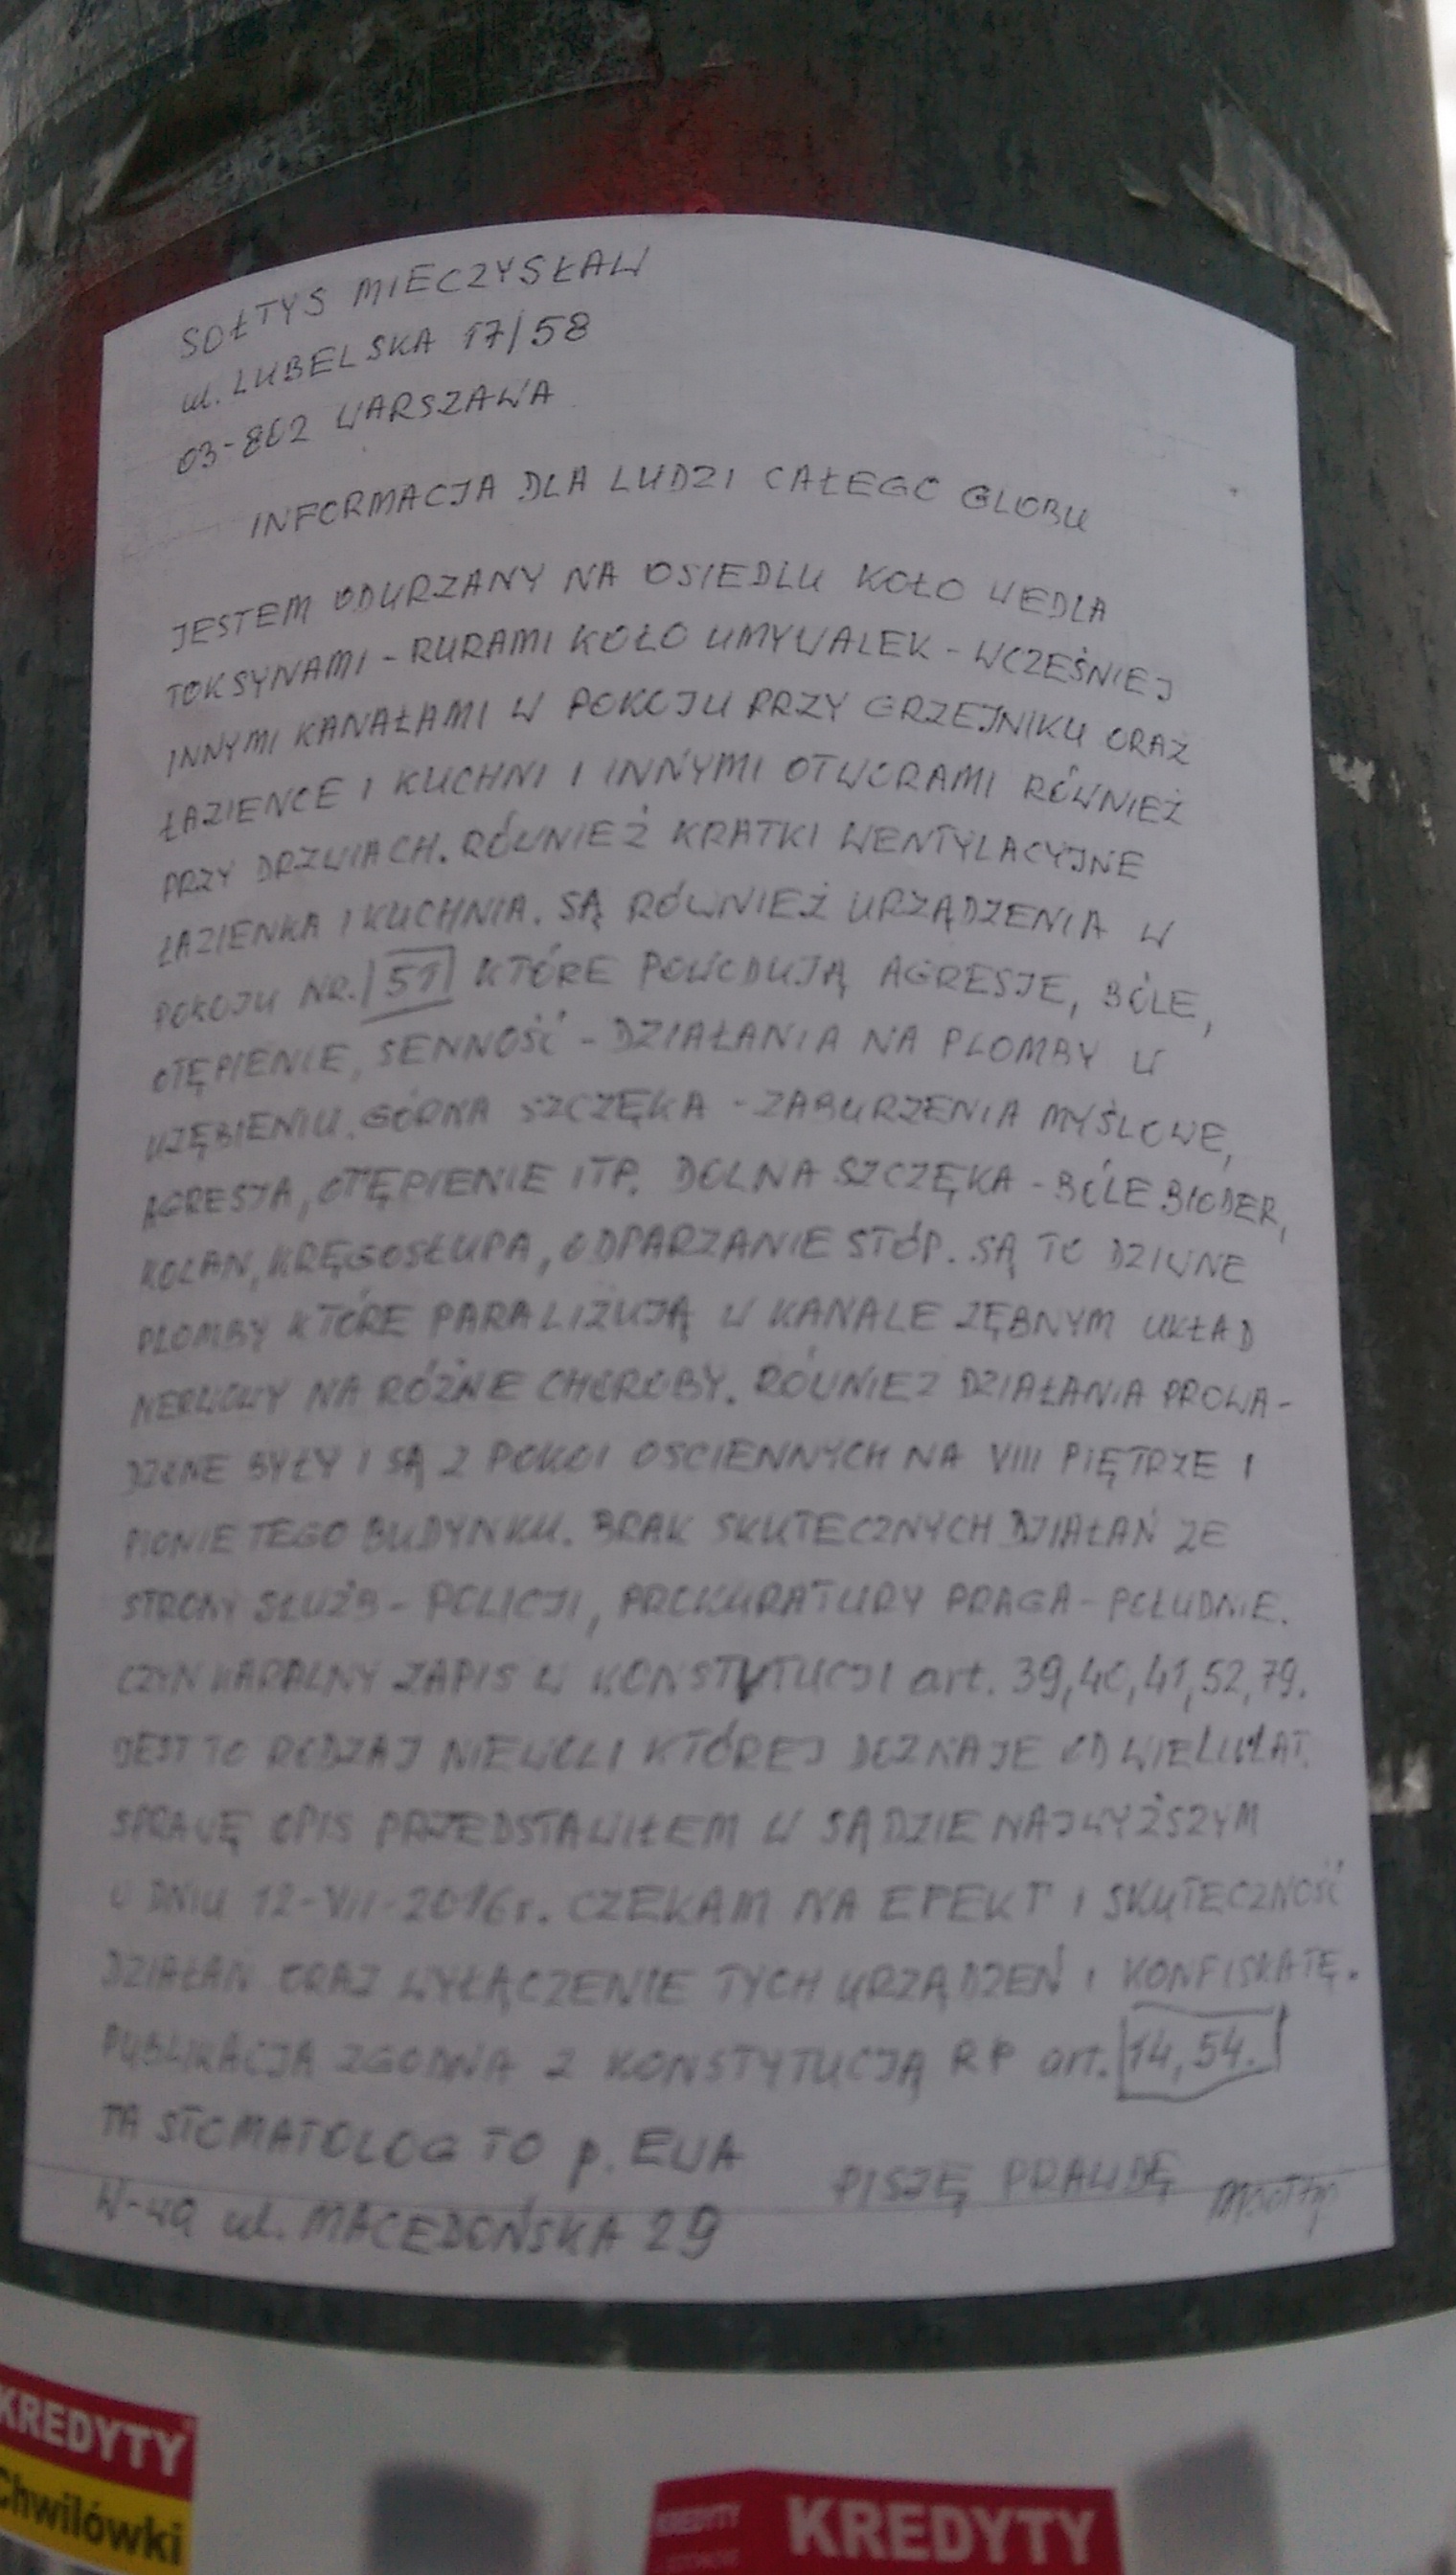 SOŁTYS MIECZYSŁAW
ul. LUBELSKA 17/58
03-802 WARSZAWA
INFORMACJA DLA LUDZI CAŁEGO GLOBU
JESTEM ODURZANY NA OSIEDLU KOŁO WEDLA
TOKSYNAMI - RURAMI KOŁO UMYWALEK - WCZEŚNIEJ
INNYMI KANAŁAMI W POKOJU PRZY GRZEJNIKU ORAZ
ŁAZIENCE I KUCHNI I INNYMI OTWORAMI RÓWNIEŻ
PRZY DRZWIACH. RÓWNIEŻ KRATKI WENTYLACYJNE
ŁAZIENKA I KUCHNIA. SĄ RÓWNIEŻ URZĄDZENIA W
POKOJU NR. 51 KTÓRE POWODUJĄ AGRESJE, BÓLE,
OTĘPIENIE, SENNOŚĆ - DZIAŁANIA NA PLOMBY W
UZĘBIENIU. GÓRNA SZCZĘKA - ZABURZENIA MYŚLOWE,
AGRESJA, OTĘPIENIE ITP. DOLNA SZCZĘKA - BÓLE BIODER,
KOLAN, KRĘGOSŁUPA, ODPARZANIE STÓP. SĄ TO DZIWNE
PLOMBY KTÓRE PARALIŻUJĄ W KANALE ZĘBNYM UKŁAD
NERWOWY NA RÓŻNE CHOROBY. RÓWNIEZ DZIAŁANIA PROWA-
DZONE BYŁY I SĄ Z POKOI OSCIENNYCH NA VIII PIĘTRZE I
PIONIE TEGO BUDYNKU. BRAK SKUTECZNYCH DZIAŁAŃ ZE
STRONY SŁUŻB - POLICJI, PROKURATURY PRAGA - POŁUDNIE.
CZYN KARALNY ZAPIS W KONSTYTUCJI art. 39, 40, 41, 52, 79.
JEST TO RODZAJ NIEWOLI KTÓREJ DOZNAJE OD WIELU LAT.
SPRAWĘ OPIS PRZEDSTAWIŁEM W SĄDZIE NAJWYŻSZYM
W DNIU 12-VII-2016r. CZEKAM NA EFEKT I SKUTECZNOŚĆ
DZIAŁAŃ ORAZ WYŁĄCZENIE TYCH URZĄDZEŃ I KONFISKATĘ.
PUBLIKACJA ZGODNA Z KONSTYTUCJĄ RP art. 14, 54.
TA STOMATOLOG TO p. EWA
PISZĘ PRAWDĘ
W-wa ul. MACEDOŃSKA 29
KREDYTY
Chwilówki
KREDYTY
KREDYTY